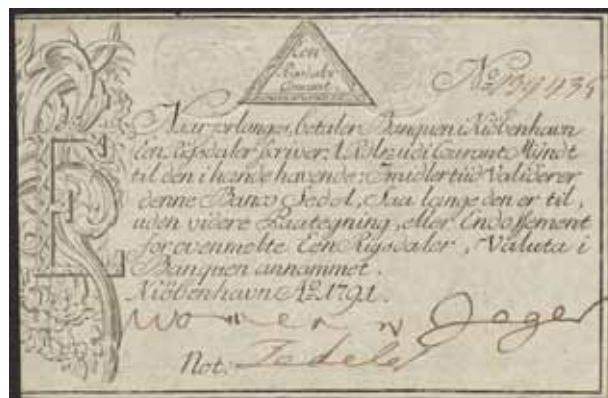 Een
Rigsdaler
Courant
No 139435
Naar forlanges, betaler Banquen i Kiöbenhavn
Een Rigsdaler skriver: 1 Rdlr udi Courant Myndt
til den i hænde havende: Imidlertiid Validerer
denne Banco Sedel, Saa længe den er til,
uden videre Paategning, eller Endossement
for ovenmelte Een Rigsdaler, Valuta i
Banquen annammet.
Kiöbenhavn Ao 1791.
Not: